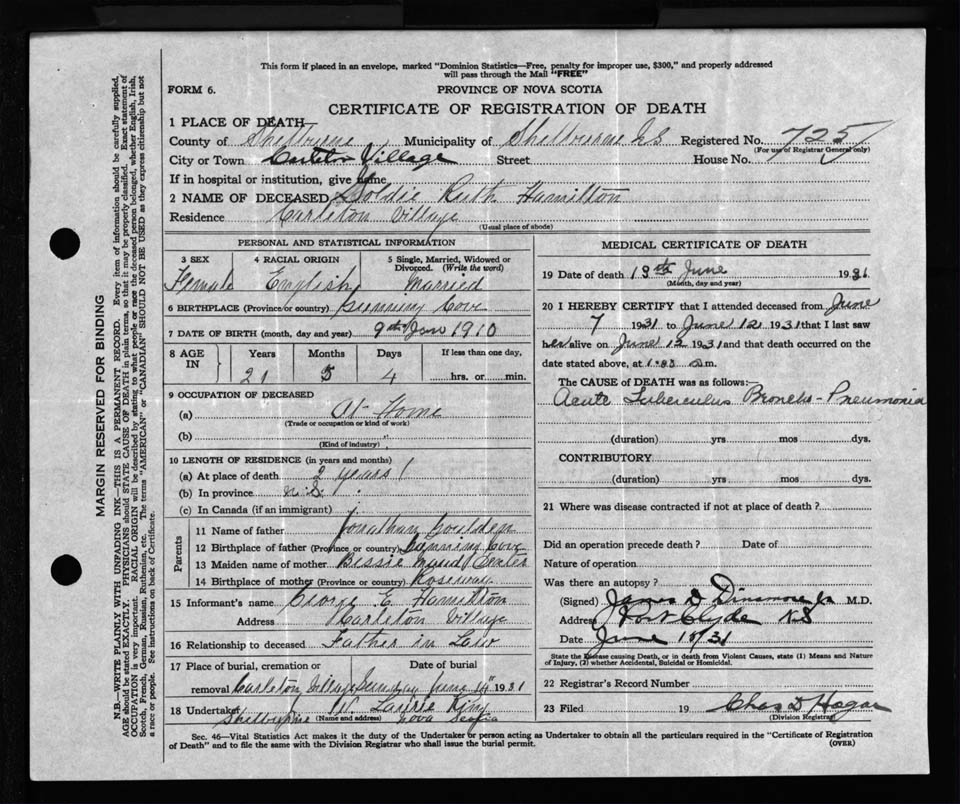 This form if placed in an envelope, marked "Dominion Statistics—Free, penalty for improper use, $300," and properly addressed
will pass through the Mail "FREE"
FORM 6.
PROVINCE OF NOVA SCOTIA
CERTIFICATE OF REGISTRATION OF DEATH
1 PLACE OF DEATH
County of Shelburne Municipality of Shelburne NS Registered No. 725
(For use of Registrar General only)
City or Town Carleton Village Street House No.
If in hospital or institution, give name
2 NAME OF DECEASED Goldie Ruth Hamilton
Residence Carleton Village
(Usual place of abode)
PERSONAL AND STATISTICAL INFORMATION
3 SEX 4 RACIAL ORIGIN 5 Single, Married, Widowed or
Divorced. (Write the word)
Female English Married
6 BIRTHPLACE (Province or country) Gunning Cove
7 DATE OF BIRTH (month, day and year) 9th Jan 1910
8 AGE IN Years Months Days If less than one day,
21 5 4 hrs. or min.
9 OCCUPATION OF DECEASED
(a) At Home
(Trade or occupation or kind of work)
(b)
(Kind of industry)
10 LENGTH OF RESIDENCE (in years and months)
(a) At place of death 2 years
(b) In province N.S.
(c) In Canada (if an immigrant)
Parents
11 Name of father Jonathan Goulden
12 Birthplace of father (Province or country) Gunning Cove
13 Maiden name of mother Bessie Maud
14 Birthplace of mother (Province or country) Roseway
15 Informant's name George E. Hamilton
Address Carleton Village
16 Relationship to deceased Father in Law
17 Place of burial, cremation or Date of burial
removal Carleton Village June 14" 1931
18 Undertaker W. Lawrie King
Shelburne (Name and address) Nova Scotia
MEDICAL CERTIFICATE OF DEATH
19 Date of death 13th June 1931
(Month, day and year)
20 I HEREBY CERTIFY that I attended deceased from June
7 1931 to June 12 1931 that I last saw
her alive on June 12 1931 and that death occurred on the
date stated above, at m.
The CAUSE OF DEATH was as follows:—
Acute Tuberculus Broncho-Pneumonia
(duration) yrs mos dys.
CONTRIBUTORY
(duration) yrs mos dys.
21 Where was disease contracted if not at place of death?
Did an operation precede death? Date of
Nature of operation
Was there an autopsy?
(Signed) James D Dinsmore Jr M.D.
Address Port Clyde NS
Date June /31
State the Disease causing Death, or in death from Violent Causes, state (1) Means and Nature
of Injury, (2) whether Accidental, Suicidal or Homicidal.
22 Registrar's Record Number
23 Filed 19 Chas D Hagar
(Division Registrar)
Sec. 46—Vital Statistics Act makes it the duty of the Undertaker or person acting as Undertaker to obtain all the particulars required in the "Certificate of Registration
of Death" and to file the same with the Division Registrar who shall issue the burial permit. (OVER)
MARGIN RESERVED FOR BINDING
N.B.—WRITE PLAINLY WITH UNFADING INK—THIS IS A PERMANENT RECORD. Every item of information should be carefully supplied.
AGE should be stated EXACTLY. PHYSICIANS should STATE CAUSE OF DEATH in plain terms, so that it may be properly classified. Exact statement of
OCCUPATION is very important. RACIAL ORIGIN will be described by stating to what people or race the deceased person belonged, whether English, Irish,
Scotch, French, German, Russian, Ruthenian, etc. The terms "AMERICAN" or "CANADIAN" SHOULD NOT BE USED as they express citizenship but not
a race or people. See instructions on back of Certificate.